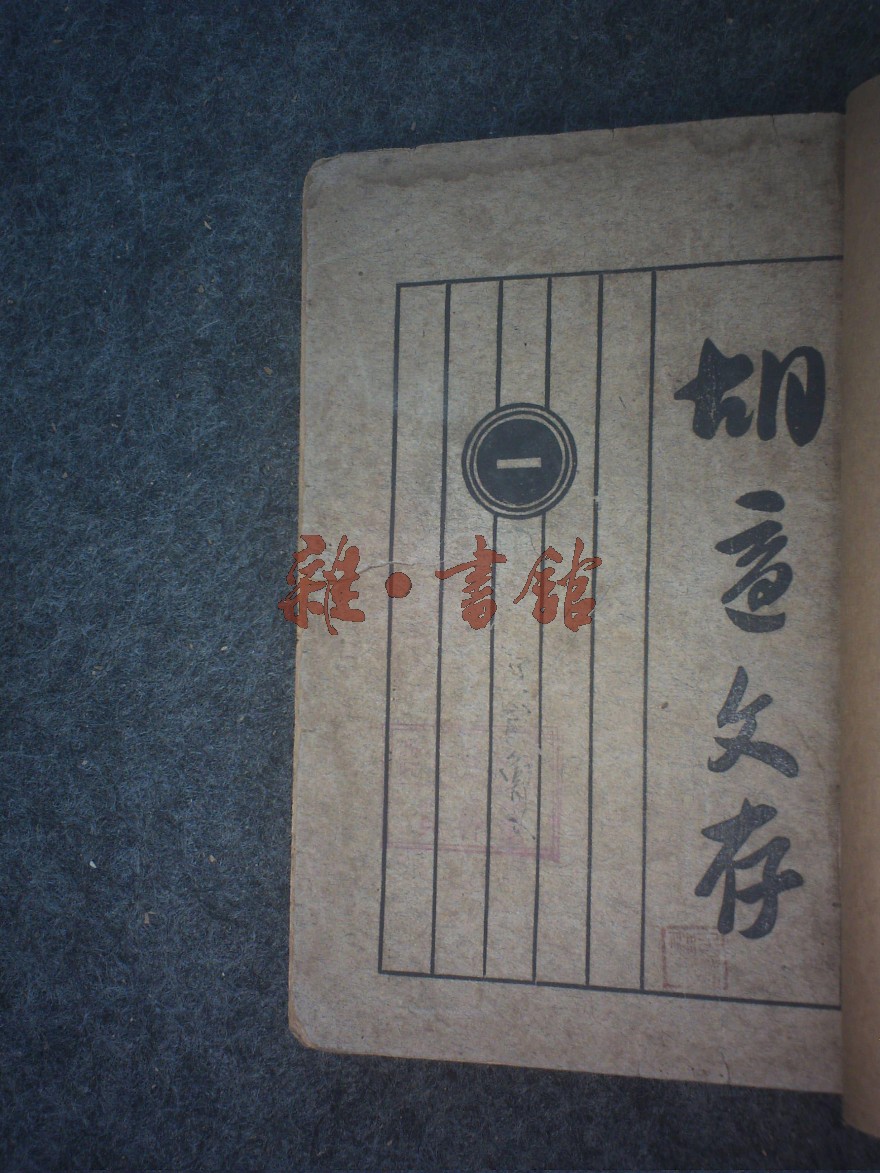 胡適文存
一
雜·書館